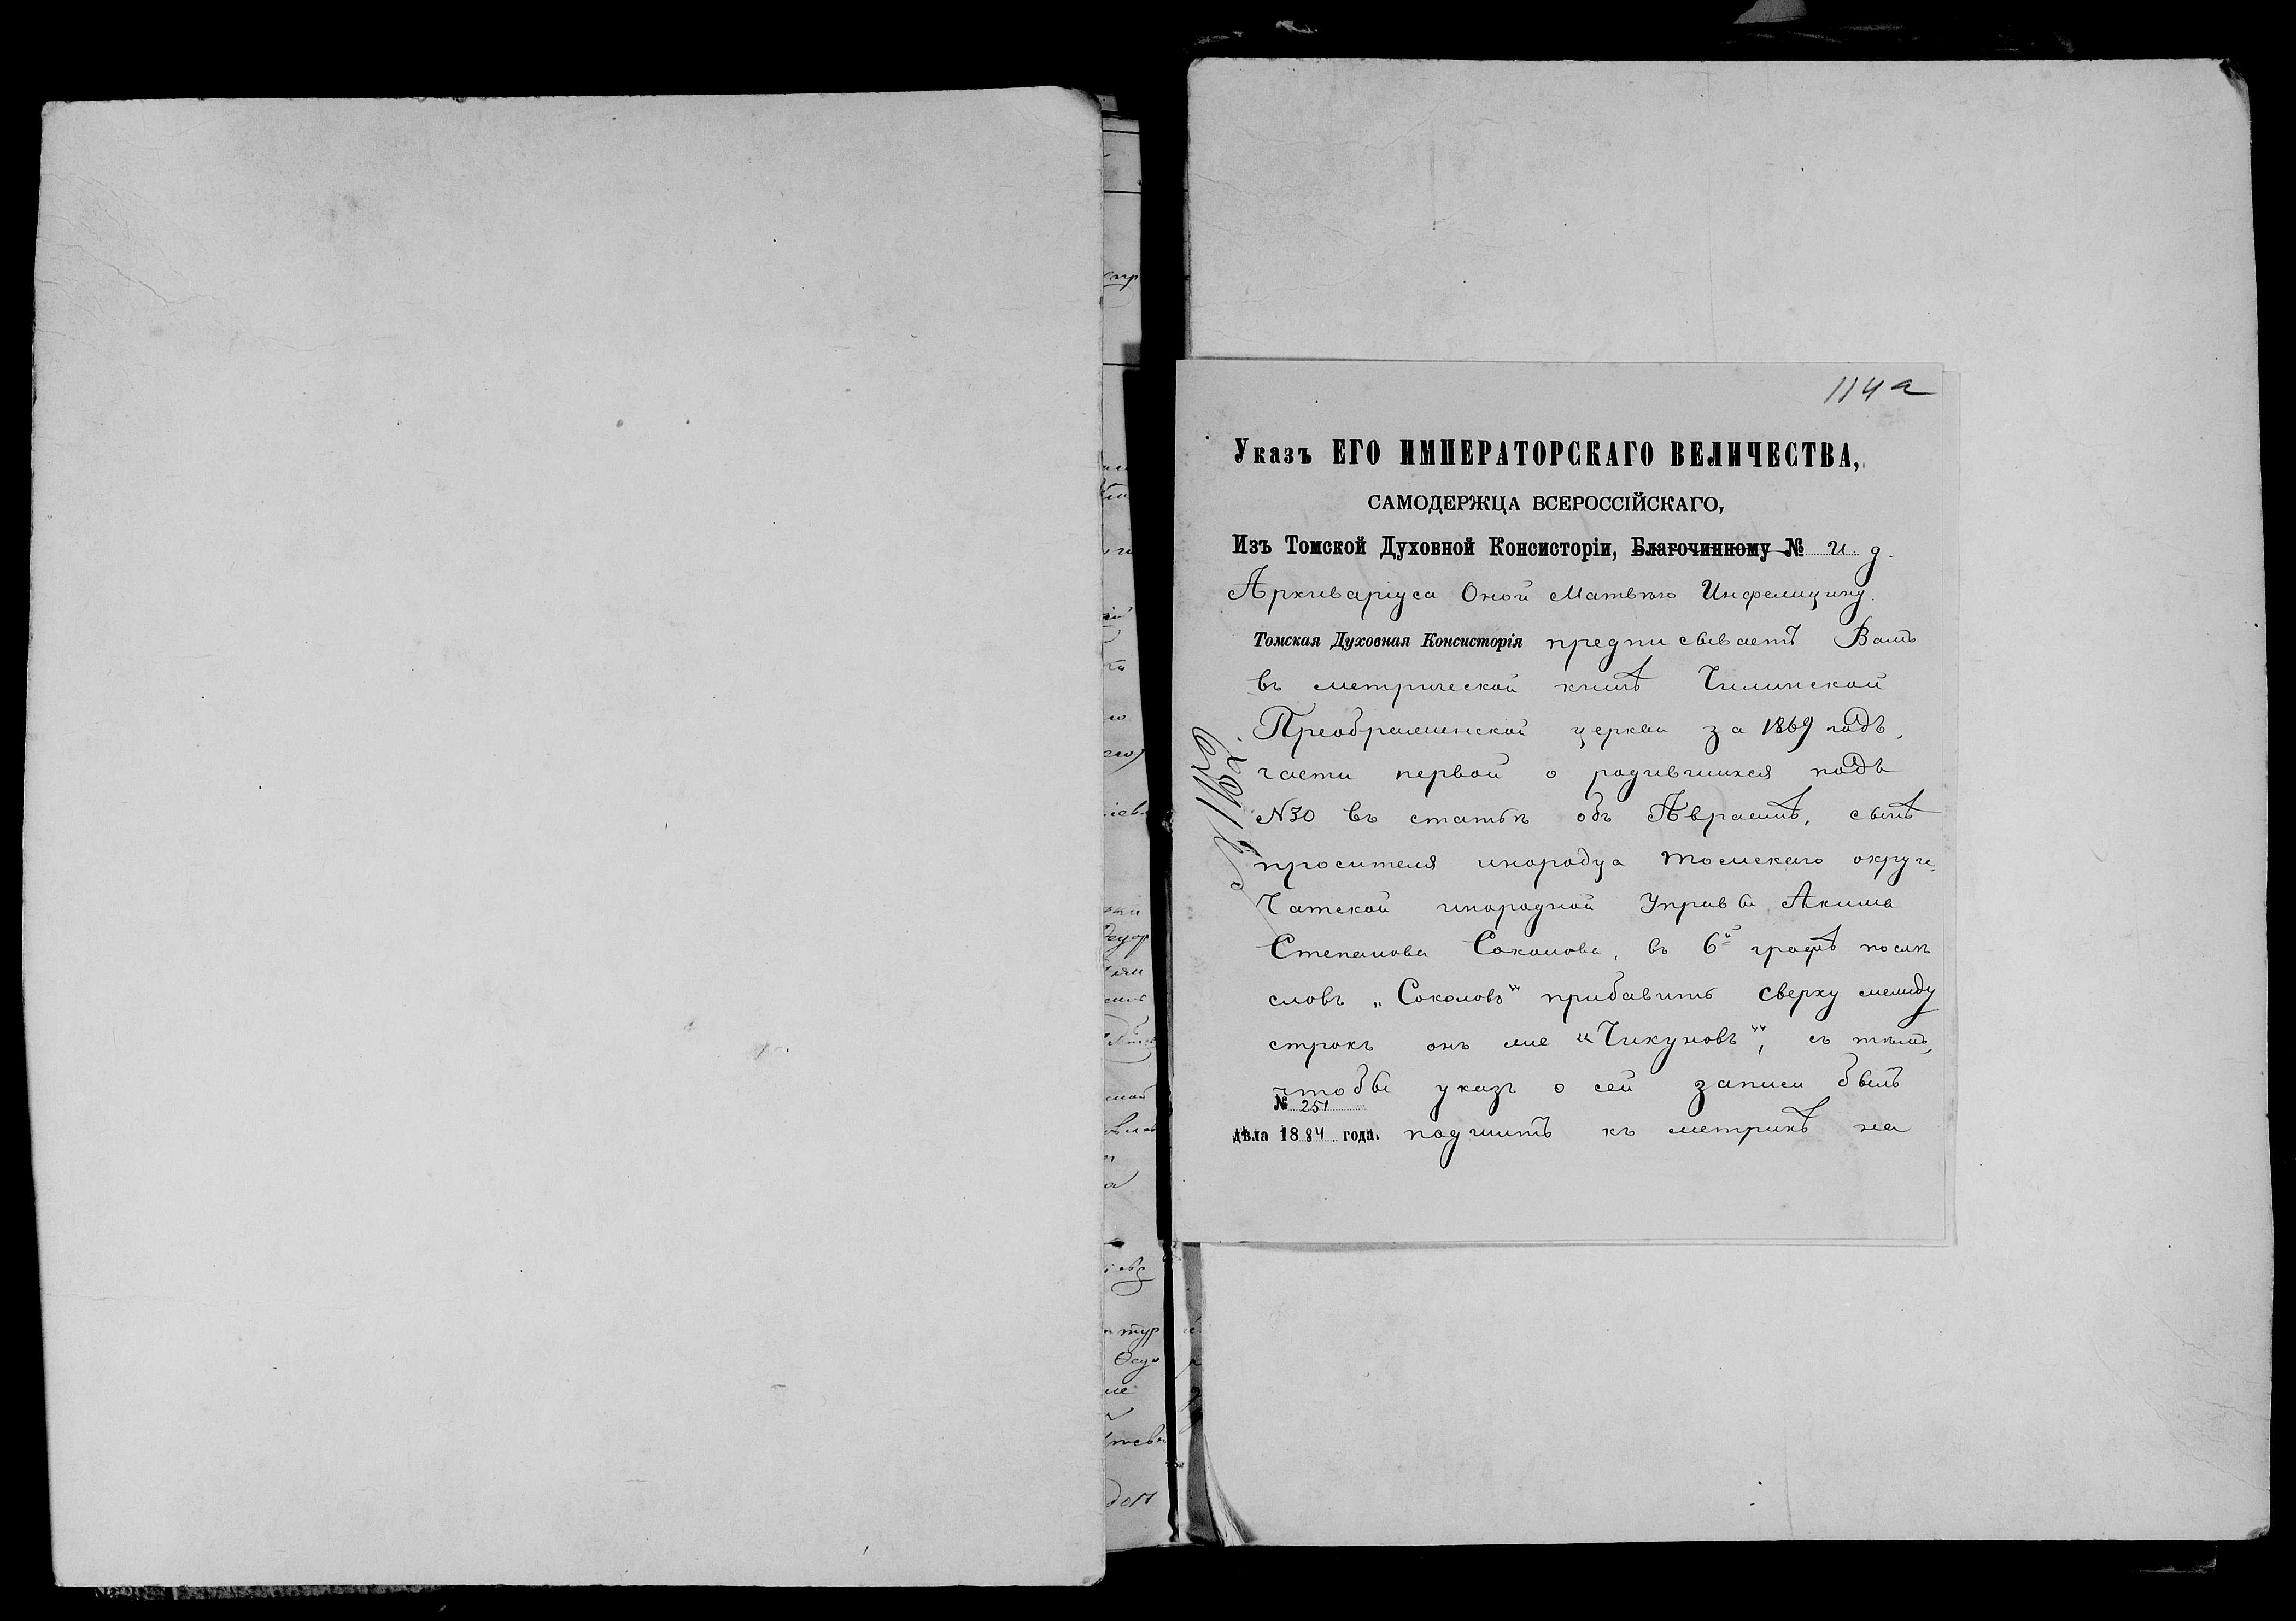 114а
Указъ ЕГО ИМПЕРАТОРСКАГО ВЕЛИЧЕСТВА,
САМОДЕРЖЦА ВСЕРОССІЙСКАГО,
Изъ Томской Духовной Консисторіи, Благочинному № И. д.
Архиваріуса Оной Матвѣю Инфелицину.
Томская Духовная Консисторія предписываетъ Вамъ
въ метрической книгѣ Чилинской
Преображенской церкви за 1869 годъ,
части первой о родившихся подъ
№ 30 въ статьѣ объ Авраамѣ, сынѣ
просителя инородца Томскаго округа,
Чатской инородной Управы Акима
Степанова Соколова, въ 6й графѣ послѣ
словъ „Соколовъ" прибавить сверху между
строкъ онъ же «Чикуновъ", съ тѣмъ,
чтобы указъ о сей записи былъ
№ 251
дѣла 1884 года. подшитъ къ метрикѣ на